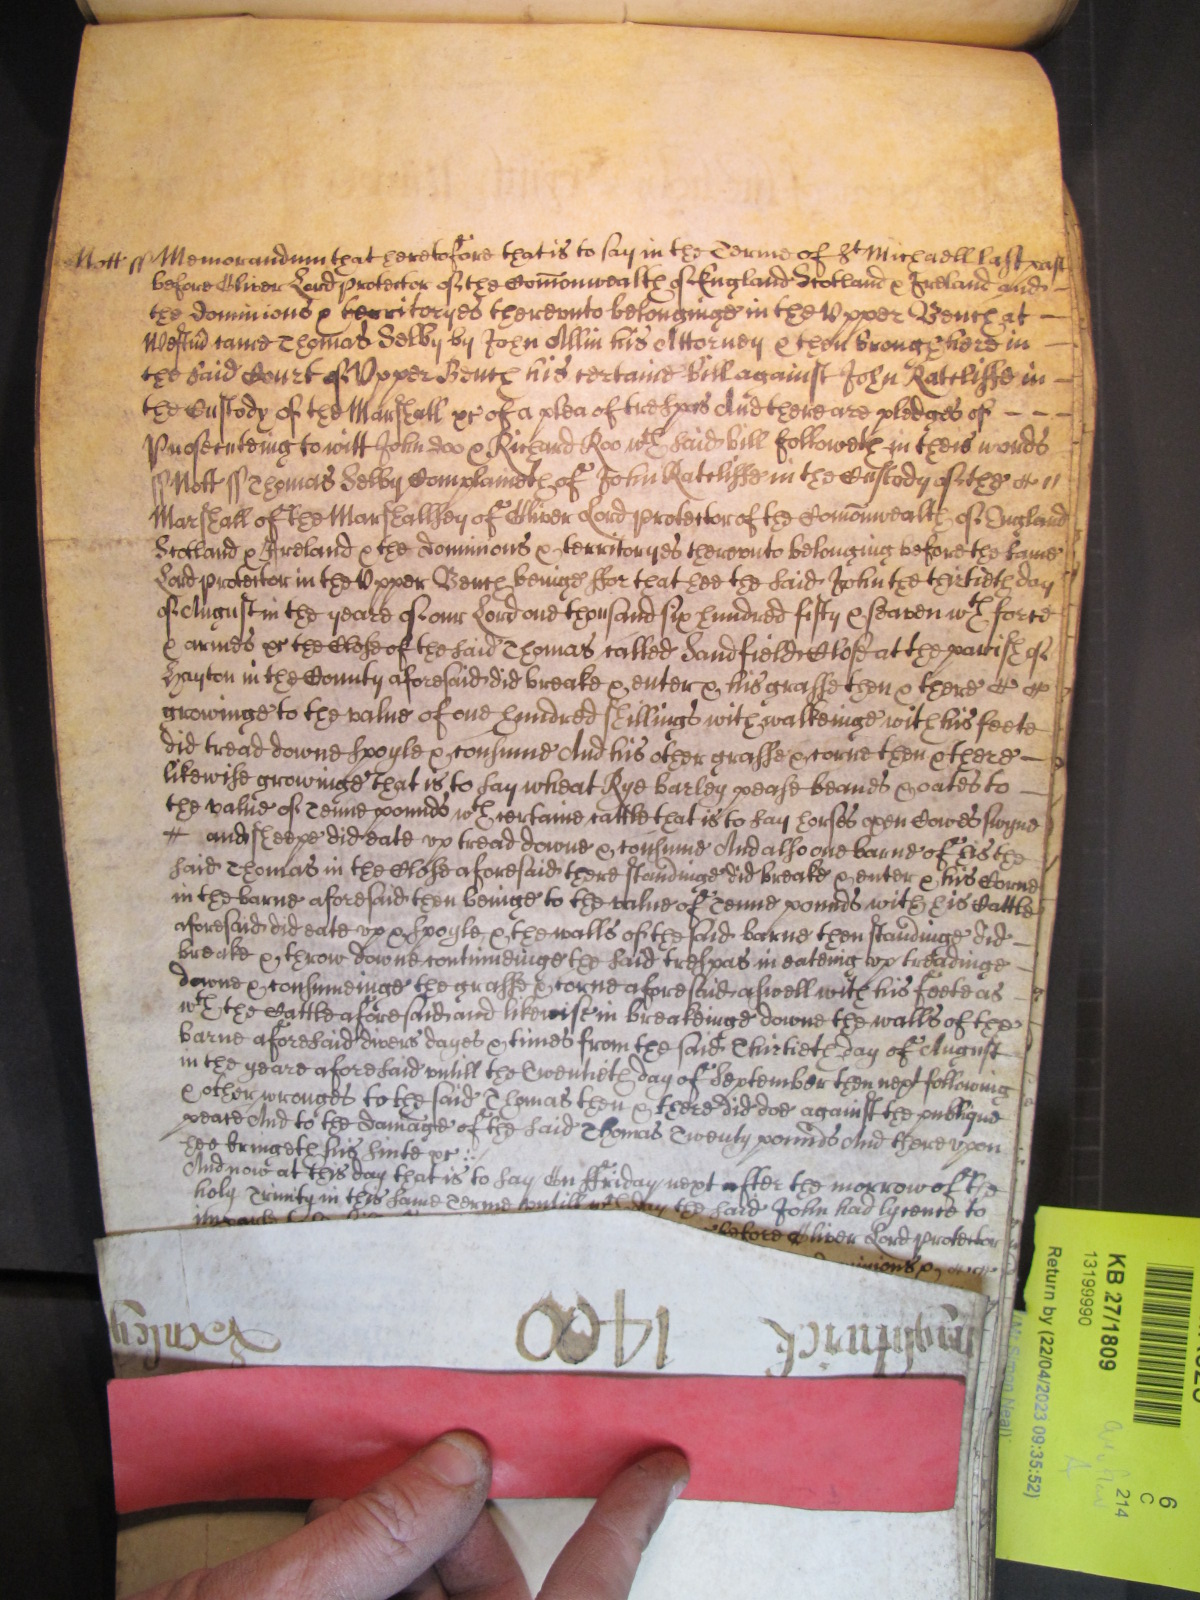 Nott ss Memorandum that heretofore that is to say in the Terme of St Michaell last past
before Oliver Lord Protector of the Comonwealth of England Scotland & Ireland and
the dominions & territoryes thereunto belonginge in the Upper Bench at
Westmr came Thomas Selby by John Allin his Attorney & then brought here in
the said Court of Upper Bench his certaine bill against John Ratcliffe in
the Custody of the Marshall &c of a plea of trespas And there are pledges of
Prosecuteing to witt John Doo & Richard Roo wch said bill followeth in theis words
ss Nott ss Thomas Selby Complaineth of John Ratcliffe in the Custody of the
Marshall of the Marshallsey of Oliver Lord Protector of the Comonwealth of England
Scotland & Ireland & the dominions & territoryes thereunto belonging before the same
Lord Protector in the Upper Bench beinge ffor that hee the said John the thirtieth day
of August in the yeare of our Lord one thousand six hundred fifty & seaven wth force
& armes &c the Close of the said Thomas called Sandfield Close at the parish of
Hayton in the County aforesaid did breake & enter & his grasse then & there
growinge to the value of one hundred shillings with walkeinge with his feete
did tread downe spoyle & consume And his other grasse & corne then & there
likewise growinge That is to say wheat Rye barley pease beanes & oates to
the value of Tenne pounds wth certaine cattle that is to say horses oxen Cowes swyne
and sheepe did eate up tread downe & consume And also one barne of his the
said Thomas in the Close aforesaid there standinge did breake & enter & his Corne
in the barne aforesaid then beinge to the value of Tenne pounds with his Cattle
aforesaid did eate up & spoyle & the walls of the said barne then standinge did
breake & throw downe continueinge the said trespas in eateing up treadinge
downe & consumeinge the grasse & corne aforesaid aswell with his feete as
wth the Cattle aforesaid and likewise in breakeinge downe the walls of the
barne aforesaid divers dayes & times from the said Thirtieth day of August
in the yeare aforesaid untill the Twentieth day of September then next following
& other wronges to the said Thomas then & there did doe against the publique
peace And to the damage of the said Thomas Twenty pounds And thereupon
hee bringeth his suite &c
And now at this day that is to say On ffriday next after the morrow of the
holy Trinity in this same Terme untill wch day the said John had lycence to
before Oliver Lord Protector
dominions &
1400
KB 27/1809
13199990
Return by (22/04/2023 09:35:52)
(Mr Simon Neal)
6
C
214